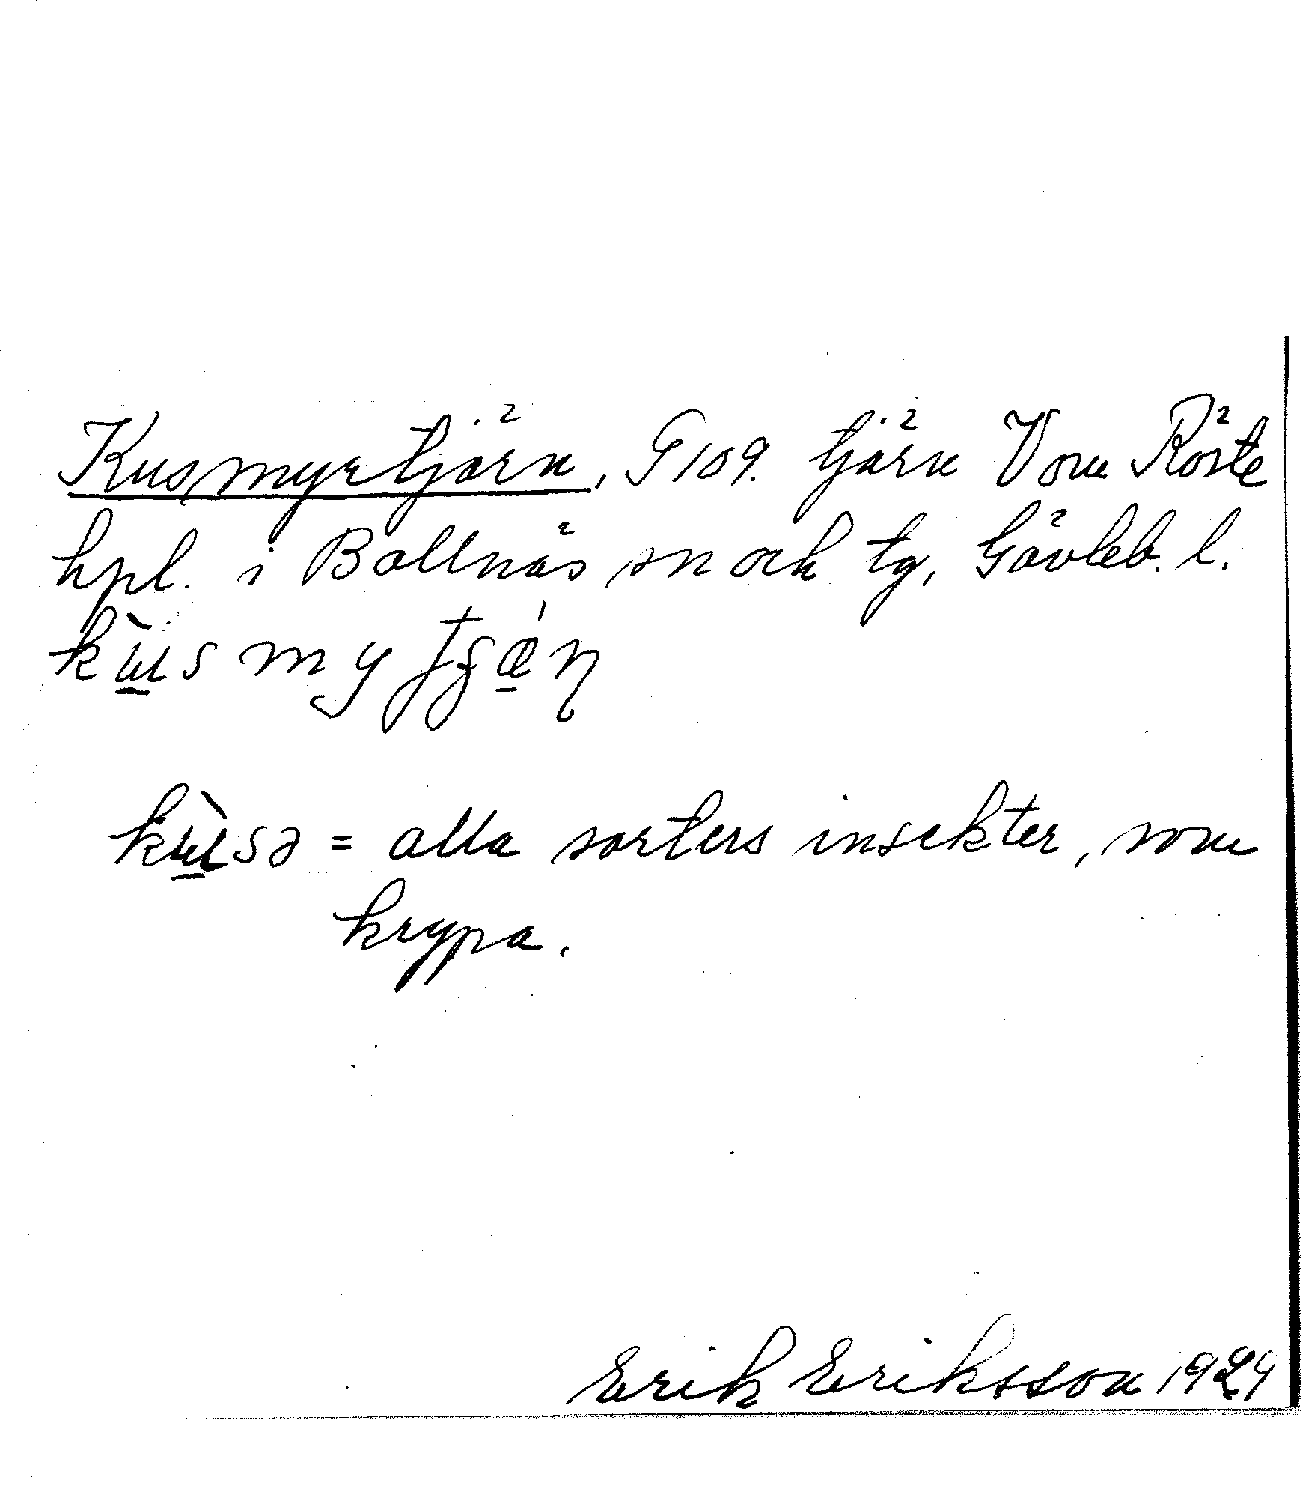 Kusmyrtjärn, G 109. tjärn V om Röste
hpl. i Bollnäs sn och tg, Gävleb. l.
kùs my tjǽṇ
kùsə = alla sorters insekter, som
krypa.
Erik Eriksson 1924